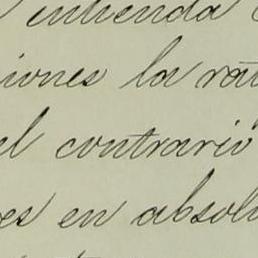 entienda
iones la rat
el contrario
es en absolu